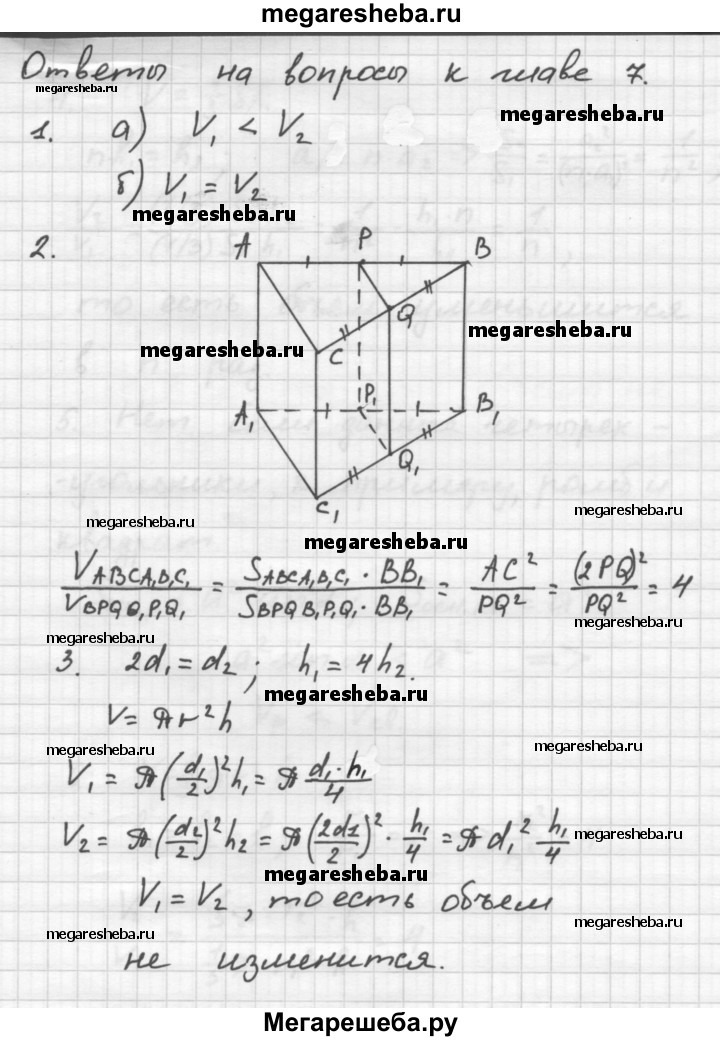 megaresheba.ru
Ответы на вопросы к главе 7.
megaresheba.ru
megaresheba.ru
1. а) V₁ < V₂
б) V₁ = V₂
megaresheba.ru
2.
A P B
Q
megaresheba.ru
megaresheba.ru
C
A₁ P₁ B₁
Q₁
C₁
megaresheba.ru
megaresheba.ru
megaresheba.ru
V_ABCA₁B₁C₁ / V_BPQB₁P₁Q₁ = S_ABCA₁B₁C₁ · BB₁ / S_BPQB₁P₁Q₁ · BB₁ = AC² / PQ² = (2PQ)² / PQ² = 4
megaresheba.ru
megaresheba.ru
3. 2d₁ = d₂; h₁ = 4h₂.
megaresheba.ru
V = πr²h
megaresheba.ru
megaresheba.ru
V₁ = π(d₁/2)²h₁ = π d₁·h₁/4
V₂ = π(d₂/2)²h₂ = π(2d1/2)² · h₁/4 = πd₁² h₁/4
megaresheba.ru
megaresheba.ru
V₁ = V₂, то есть объем
megaresheba.ru
megaresheba.ru
не изменится.
Мегарешеба.ру